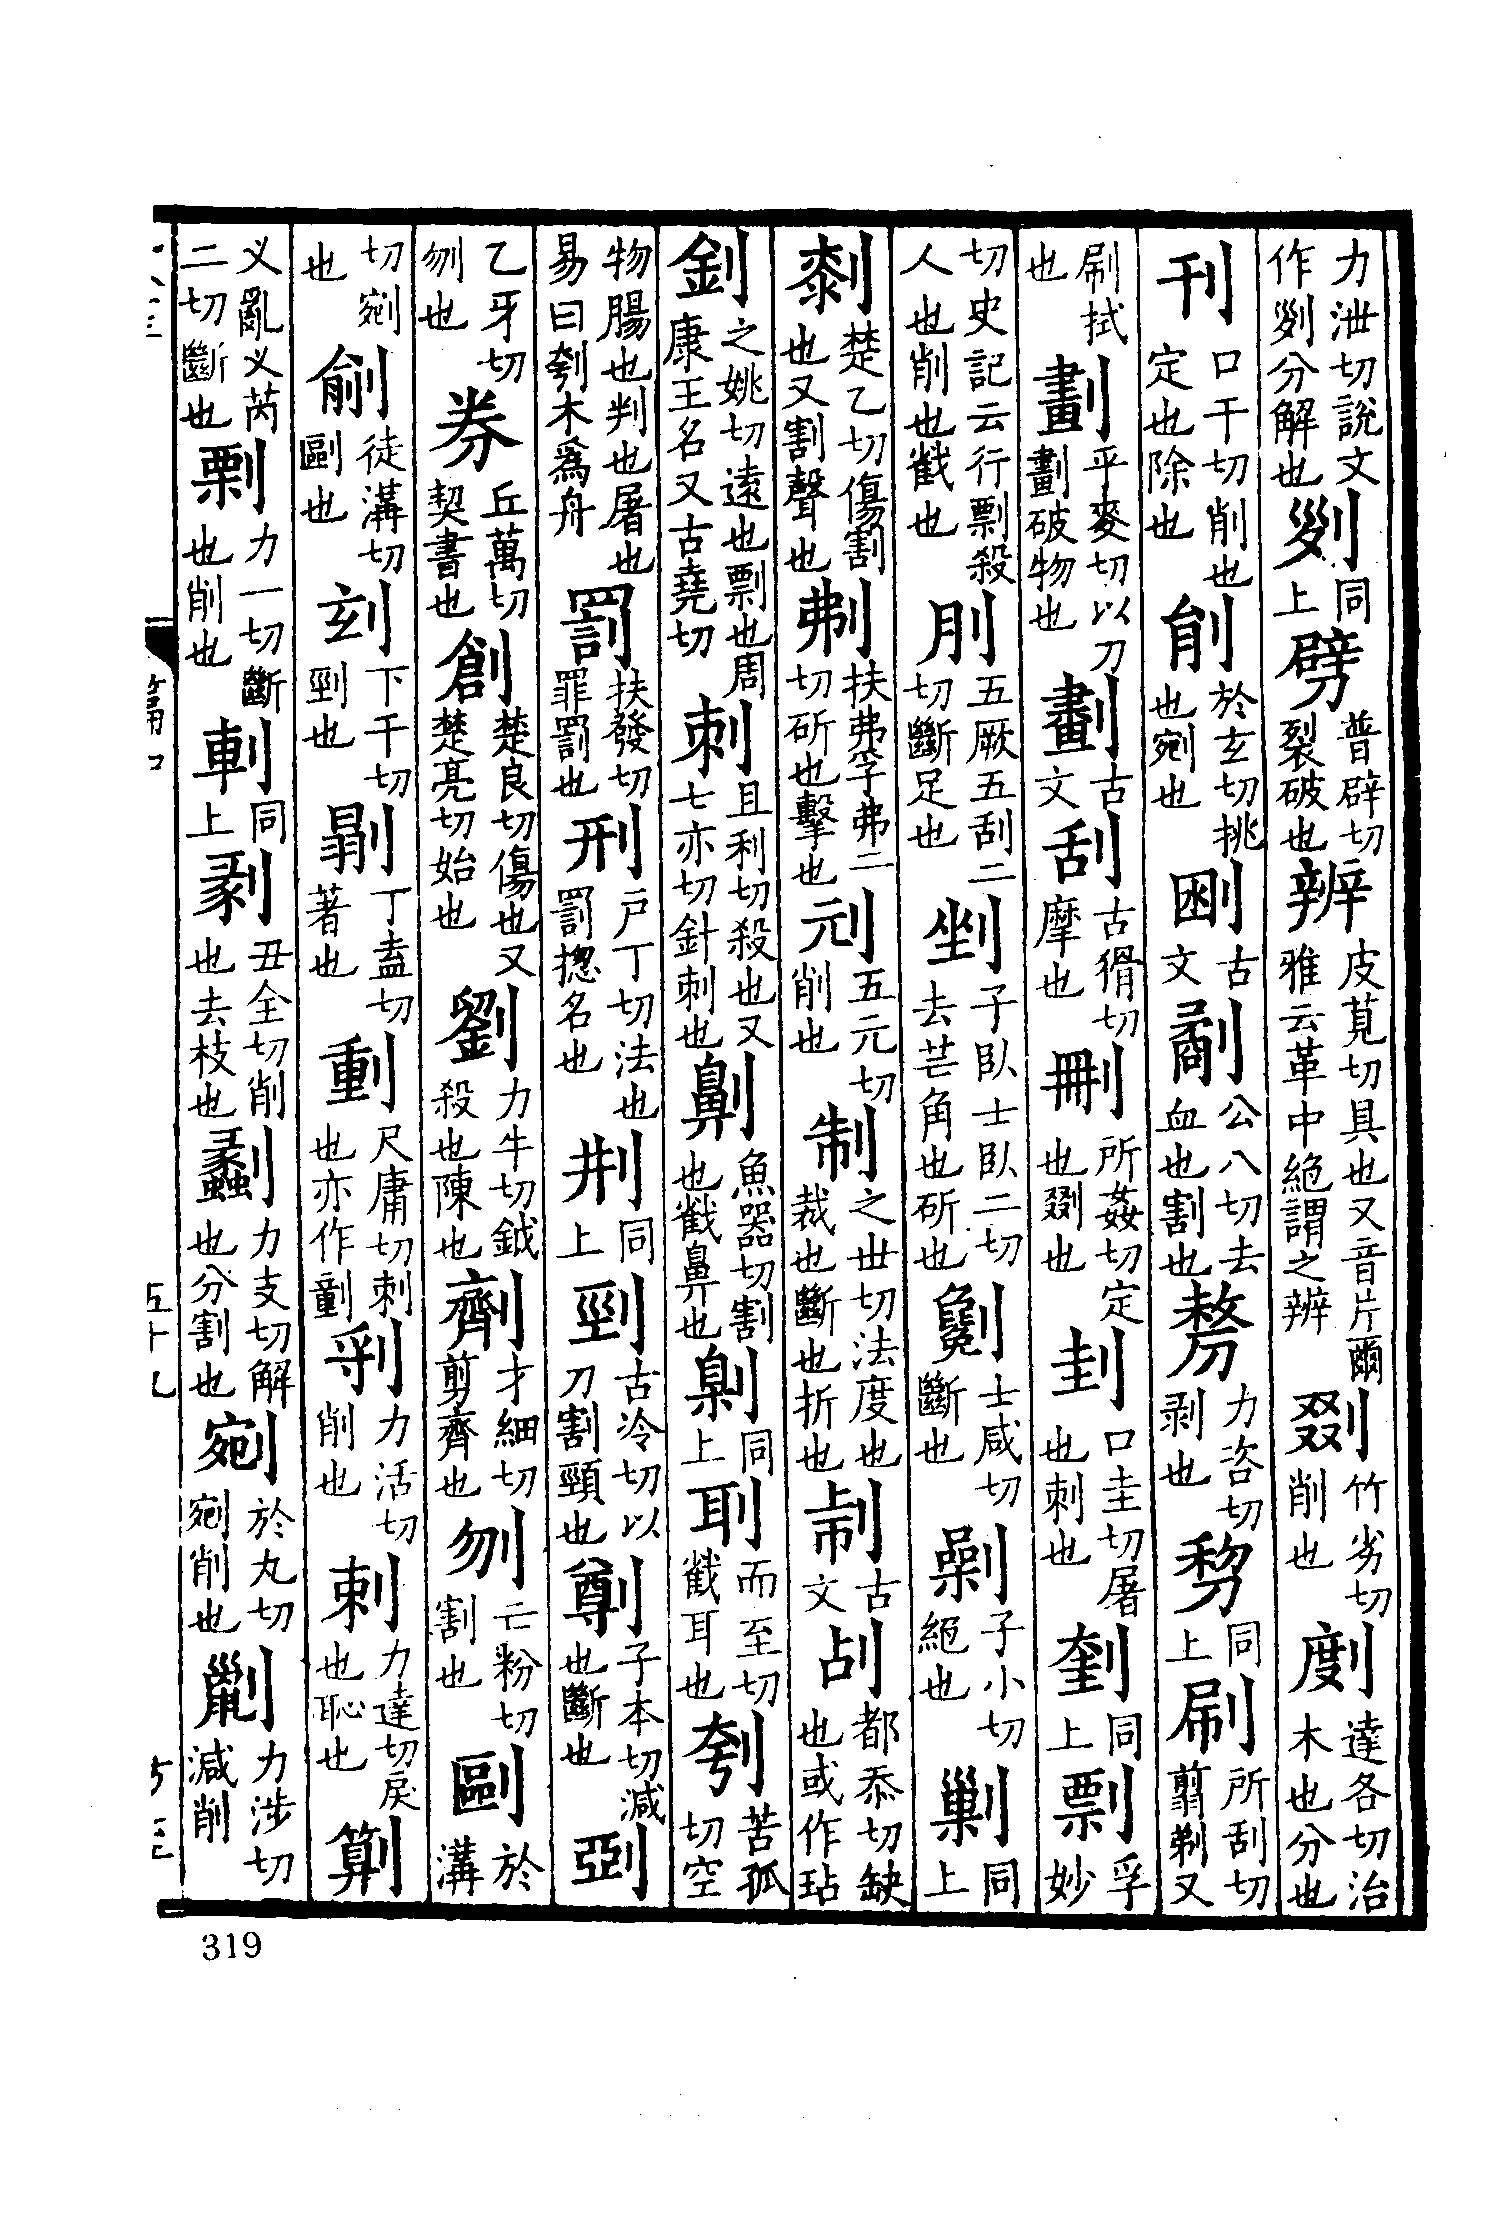 力泄切說文作𠛱分解也𠛱同上劈普辟切裂破也辨皮莧切具也又音片爾雅云革中絕謂之辨剟竹劣切削也剫達各切治木也分也
刊口干切削也定也除也剈於玄切挑也剜也古文劀公八切去血也割也剺力咨切剥也同上刷所刮切翦剃又
刷拭也劃乎麥切以刀劃破物也古文刮古猾切摩也刪所姦切定也剟也刲口圭切屠也刺也同上剽孚妙
切史記云行剽殺人也削也截也刖五厥五刮二切斷足也剉子臥士臥二切去芒角也斫也劖士咸切斷也劋子小切絕也剿同上
楚乙切傷割也又割聲也刜扶弗孚弗二切斫也擊也刓五元切削也制之世切法度也裁也斷也折也古文㓠都忝切缺也或作玷
釗之姚切遠也剽也周康王名又古堯切刺且利切殺也又七亦切針刺也劓魚器切割也截鼻也臬刂同上刵而至切截耳也刳苦孤切空
物腸也判也屠也易曰刳木爲舟罰扶發切罪罰也刑戶丁切法也罰揔名也㓝同上剄古冷切以刀割頸也子本切減也斷也
乙牙切刎也券丘萬切契書也創楚良切傷也又楚亮切始也劉力牛切鉞殺也陳也劑才細切剪齊也刎亡粉切割也剾於溝
切剜也徒溝切剾也下千切剄也丁盍切著也尺庸切刺也亦作力活切削也剌力達切戾也恥也
义亂义芮二切斷也力一切斷也削也同上剶丑全切削也去枝也劙力支切解也分割也剜於丸切剜削也力涉切減削
五十九
319